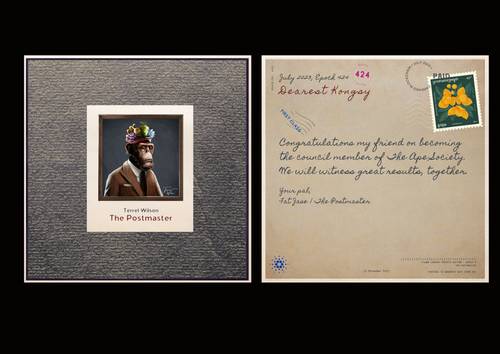 Terret Wilson
The Postmaster
July 2023, Epoch 424
424
Dearest Kongsy
FIRST CLASS
PAID
Congratulations my friend on becoming
the council member of The Ape Society.
We will witness great results, together.
Your pal,
Fat Jase | The Postmaster